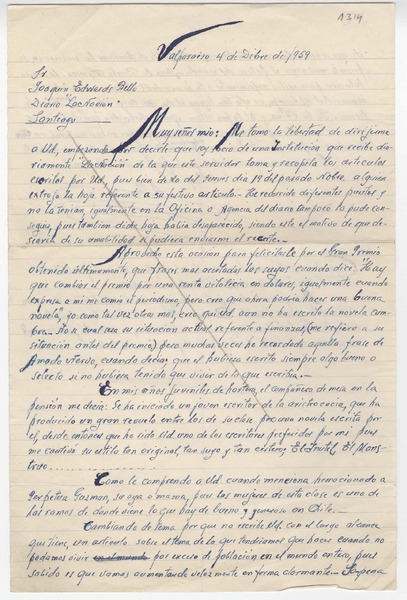 1314
Valparaiso 4 de Dibre de 1959
Sr
Joaquin Edwards Bello
Diario "La Nacion"
Santiago
Muy señor mio: Me tomo la libertad de dirijirme
a Ud, empezando por decirle que soy socio de una Institución que recibe dia-
riamente "La Nación" de la que este servidor toma y recopila los articulos
escritos por Ud, pues bien de la del lunes dia 19 del pasado Nobre, alguien
extrajo la hoja referente a su festivo articulo. He recorrido diferentes puestos y
no la tenian, igualmente en la Oficina o Agencia del diario tampoco la pude con-
seguir, pues tambien dicha hoja habia desaparecido, siendo este el motivo de que de-
searia de su amabilidad si pudiera enviarme el recorte.
Aprovecho esta ocasión para felicitarle por el Gran Premio
obtenido ultimamente, que frases mas acertadas las suyas cuando dice "Hay
que cambiar el premio por una renta vitalicia en dolares, igualmente cuando
expresa a mi me como el periodismo, pero creo que aun podria hacer una buena
novela", yo como tal vez otros mas, creo que Ud aun no ha escrito la novela cum-
bre. No se cual sea su situación actual referente a finanzas, (me refiero a su
situación antes del premio) pero muchas veces he recordado aquella frase de
Amado Nervo, cuando decia; que el hubiera escrito siempre algo bueno o
selecto si no hubiera tenido que vivir de lo que escribia.
En mis años juveniles de hortera, el compañero de mesa en la
pensión me decia: Se ha iniciado un joven escritor de la aristocracia, que ha
producido un gran revuelo entre los de su clase por una novela escrita por
el, desde entonces que ha sido Ud uno de los escritores preferidos por mi pues
me cautivo su estilo tan original, tan suyo y tan certero; El Inutil, El Mons-
truo.
Como le comprendo a Ud cuando menciona emocionado a
Perpetua Guzman, su aya o mama, pues las mujeres de esta clase es una de
las ramas de donde viene lo que hay de bueno y generoso en Chile.
Cambiando de tema por que no escribe Ud con el largo alcance
que tiene, un articulo sobre el tema de lo que tendriamos que hacer cuando no
podamos vivir en el mundo por exceso de población en el mundo entero, pues
sabido es que vamos aumentando velozmente en forma alarmante.